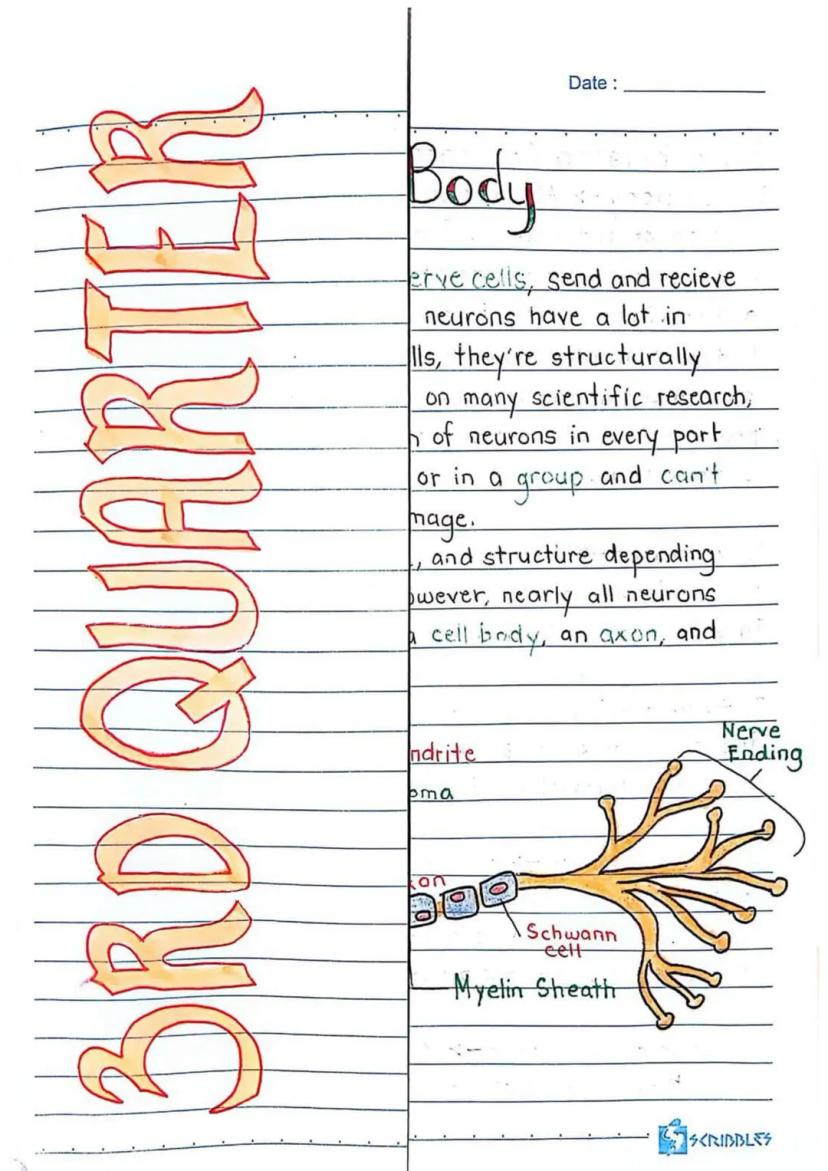 3RD QUARTER
Date :
Body
erve cells, send and recieve
neurons have a lot in
lls, they're structurally
on many scientific research,
n of neurons in every part
or in a group and can't
mage.
, and structure depending
owever, nearly all neurons
a cell body, an axon, and
Nerve
Ending
ndrite
oma
xon
Schwann
cell
Myelin Sheath
SCRIBBLES